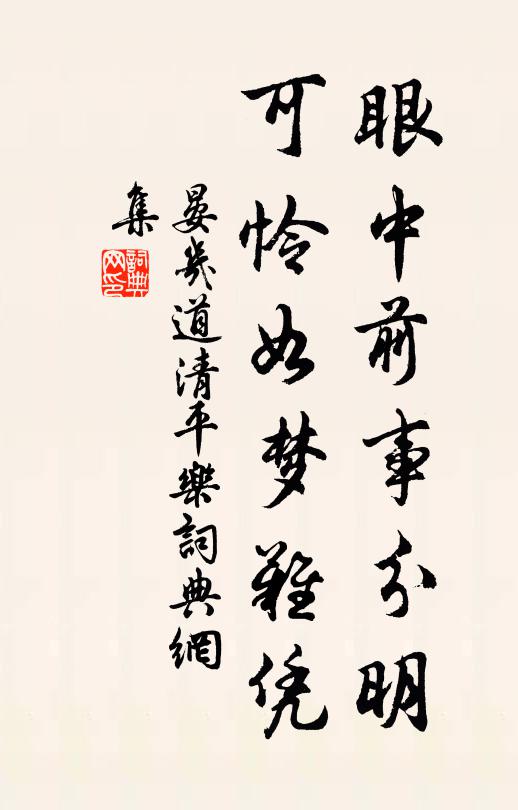 眼中前事分明
可怜如梦難凭
晏幾道清平樂詞典網
集
詞典
网印